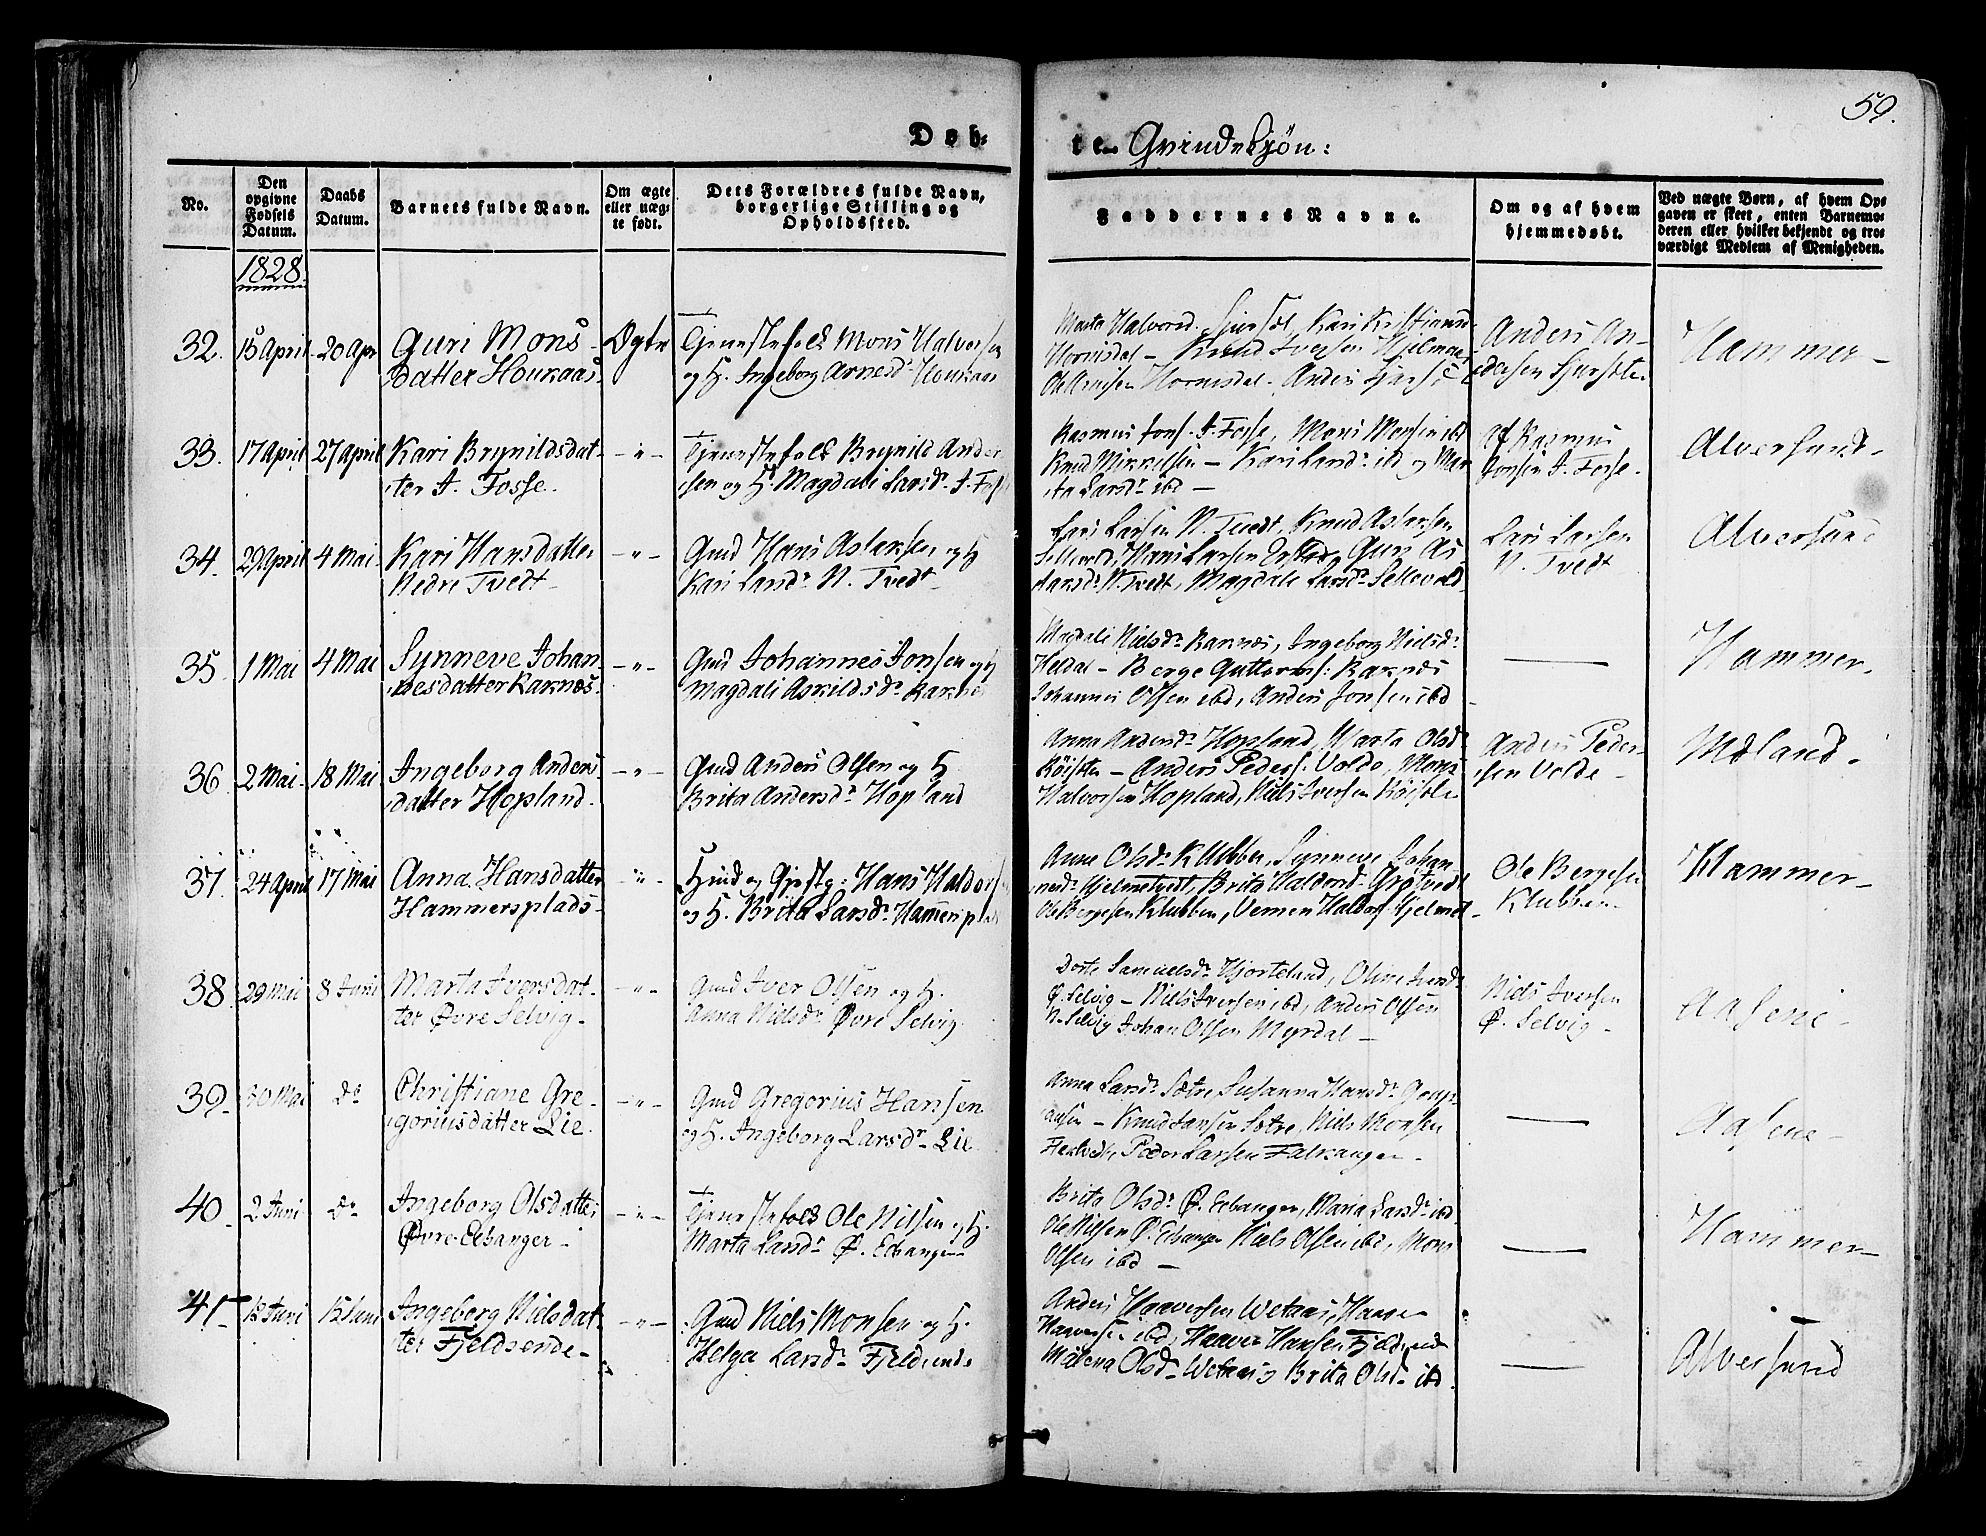 59.
Døb-
te Qvindekjön:
No.
Den opgivne Fødsels Datum.
Daabs Datum.
Barnets fulde Navn.
Om ægte eller uægte født.
Dets Forældres fulde Navn, borgerlige Stilling og Opholdssted.
Faddernes Navne.
Om og af hvem hjemmedøbt.
Ved uægte Børn, af hvem Opgaven er skeet, enten Barnemoderen eller hvilket bekjendt og troværdigt Medlem af Menigheden.
1828.
32. 15 April 20 Apr Guri Mons
datter Houkaas. Ægte Tjenestefolk Mons Halvorsen
og H. Ingeborg Arnesd. Houkaas
Marta Halvorsd. Kari Kristians
Hornisdal - Knud Iversen
Hornisdal. Anders
Anders An-
Hammer-
33. 17 April 27 April Kari Brynildsdat-
ter I. Fosse. -"- Tjenestefolk Brynild Ander
sen og H. Magdali Larsdr I. Foss
Rasmus Jons. I. Fosse, Mons Monsen ibd
Knud Mikkelsen - Kari Larsdr ibd og Mar
ta Larsdr ibd -
af Rasmus
Jonsen I. Fosse.
Alversund.
34. 29 April 4 Mai Kari Hansdatter
Nedre Tvedt -"- Gmd Hans Aslaksen og H
Kari Larsdr N. Tvedt
Lars Larsen N. Tvedt, Knud Aslaksen
Sellevold, Hans Larsen Guri As
laksdr N. Tvedt, Magdale Larsdr Sellevold
Lars Larsen
N. Tvedt
Alversund
35. 1 Mai 4 Mai Synneve Johan
nesdatter Raknes. -"- Gmd Johannes Jonsen og H
Magdali Askildsdr Raknes
Magdali Nielsdr Raknes, Ingeborg Nielsdr
Heldal - Berge Guttorms: Raknes
Johannes Olsen ibd, Anders Jonsen ibd
—
Hammer.
36. 2 Mai 18 Mai Ingeborg Anders
datter Hopland. -"- Gmd Anders Olsen og H.
Brita Andersdr Hopland
Anna Andersdr Hopland, Marta Olsdr
- Anders Peders. Volde, Mons
Halvorsen Hopland, Niels Iversen
Anders Peder-
sen Volde -
Mæland.
37. 24 April 17 Mai Anna Hansdatter
Hammersplads. -"- og Gjestg: Hans Haldors
og H. Brita Larsdr Hamersplads
Anne Olsdr Klubben, Synneve Johan
nesdr Hjelmtvedt, Brita Haldorsd.
Ole Bergesen Klubben, Haldors. Hjelmt
Ole Bergesen
Klubben.
Hammer-
38. 29 Mai 8 Juni Marta Iversdat-
ter Øvre Selvig. -"- Gmd Iver Olsen og H.
Anna Nielsdr Øvre Selvig.
Dorte Samuelsdr Hjorteland, Oline Iversdr
Ø. Selvig - Niels Iversen ibd, Anders Olsen
N. Selvig Johan Olsen Myrdal -
Niels Iversen
Ø. Selvig -
Aasene -
39. 30 Mai do Christiane Gre-
goriusdatter Lie. -"- Gmd Gregorius Hansen
og H. Ingeborg Larsdr Lie
Anna Larsdr Sætre, Susanna Hansdr
- Knud Jansen Sætre, Niels Monsen
Peder Larsen Falkanger -
—
Aasene -
40. 2 Juni do Ingeborg Olsdatter
Øvre-Echanger - -"- Tjenestefolk Ole Nilsen og H.
Marta Larsdr Ø. Echanger
Brita Olsdr Ø. Echanger, Maria Larsdr ibd.
Ole Nilsen Ø. Echanger Niels Olsen ibd, Mons
Olsen ibd -
—
Hammer-
41. 12 Juni 15 Juni Ingeborg Nielsdat-
ter Fjeldsende- -"- Gmd Niels Monsen og H.
Helga Larsdr Fjeldsende
Anders Haaversen Wetaas, Hans
Haaversen ibd, Haaver Hansen Fjeldsende
Malena Olsdr Wetaas Brita Olsdr ibd.
—
Alversund